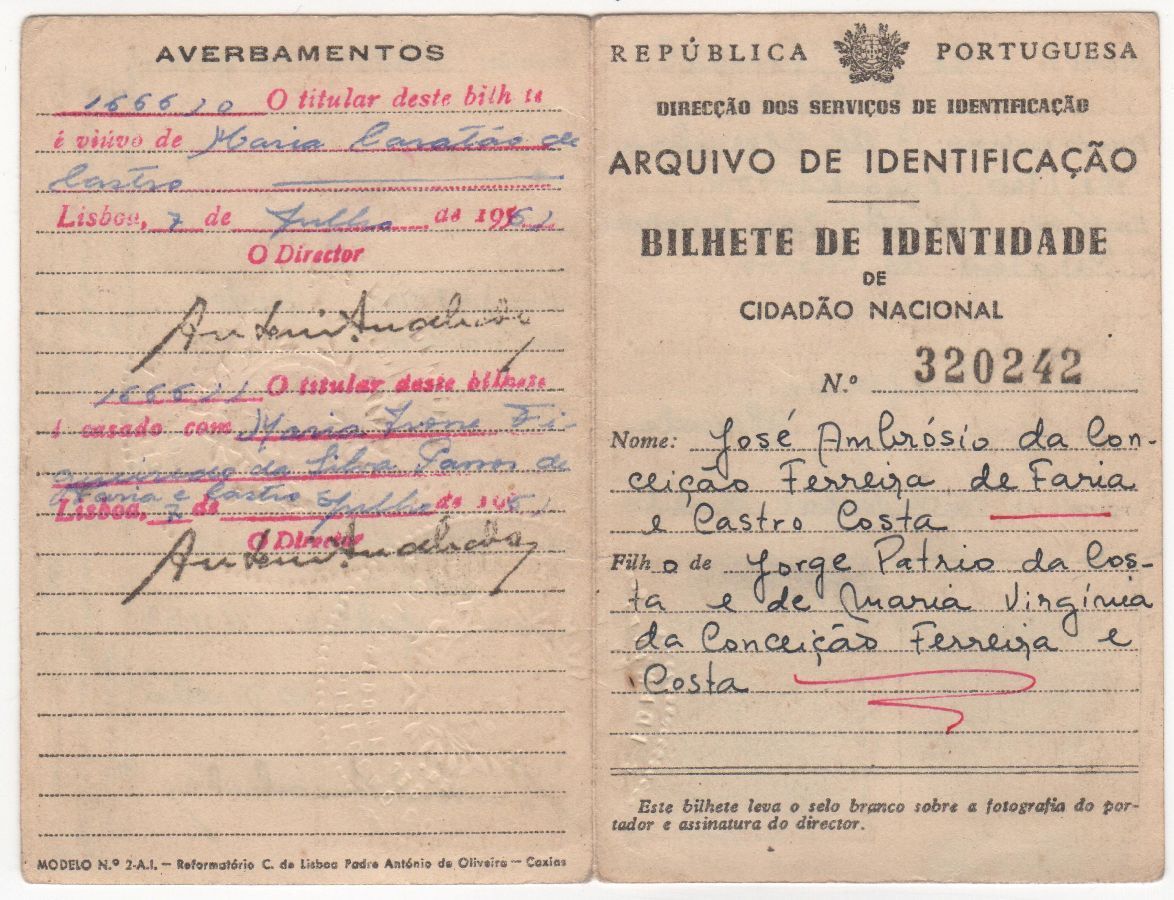 AVERBAMENTOS
166610 O titular deste bilh te
é viúvo de Maria de
Castro
Lisboa, 7 de Julho de 1961
O Director
166611 O titular deste bilhete
é casado com Maria Ivone Fi-
gueiredo da Silva de
Faria e Castro
Lisboa, 7 de Julho de 1961
O Director
MODELO N.º 2-A.I. — Reformatório C. de Lisboa Padre António de Oliveira — Caxias
REPÚBLICA PORTUGUESA
DIRECÇÃO DOS SERVIÇOS DE IDENTIFICAÇÃO
ARQUIVO DE IDENTIFICAÇÃO
BILHETE DE IDENTIDADE
DE
CIDADÃO NACIONAL
N.º 320242
Nome: José Ambrósio da Con-
ceição Ferreira de Faria
e Castro Costa
Filho de Jorge Patrio da Cos-
ta e de Maria Virgínia
da Conceição Ferreira e
Costa
Este bilhete leva o selo branco sobre a fotografia do por-
tador e assinatura do director.